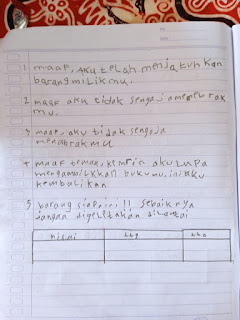 1 maaf, aku telah menjatuhkan
barang milikmu.
2 maaf aku tidak sengaja
mu.
3 maaf, aku tidak sengaja
menabrakmu
4 maaf teman, kemarin aku lupa
mengambilkan bukumu, ini aku
kembalikan
5 barang siapa ini!! sebaiknya
jangan digeletakan dilantai
nilai